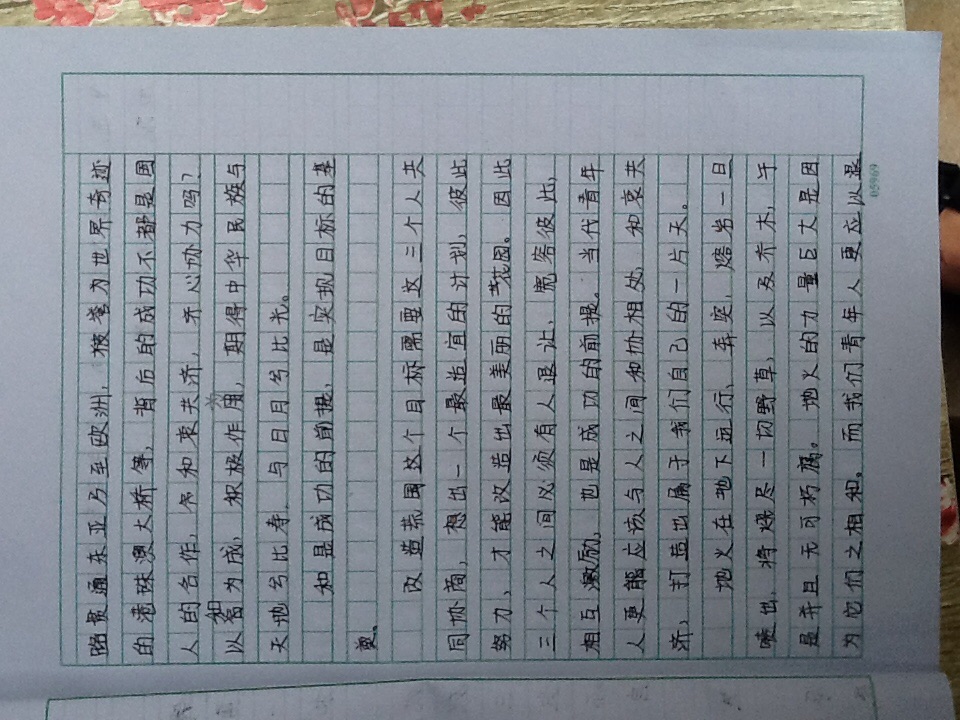 路贯通东亚乃至欧洲，被誉为世界奇迹
的港珠澳大桥等，背后的成功不都是国
人的合作，和衷共济，齐心协力吗？
以和为成，积极作用，期得中华民族与
天地兮比寿，与日月兮比光。
和是成功的前提，是实现目标的基
奠。
改造荒园这个目标需要这三个人共
同协商，想出一个最适宜的计划，彼此
努力，才能改造出最美丽的花园。因此
三个人之间必须有人退让，宽容彼此，
相互激励，也是成功的前提。当代青年
人更应该与人之间和协相处，和衷共
济，打造出属于我们自己的一片天。
地火在地下运行、奔突，熔岩一旦
喷出，将烧尽一切野草，以及乔木，于
是并且无可朽腐。地火的力量巨大是因
为它们之相和。而我们青年人更应以是
05969